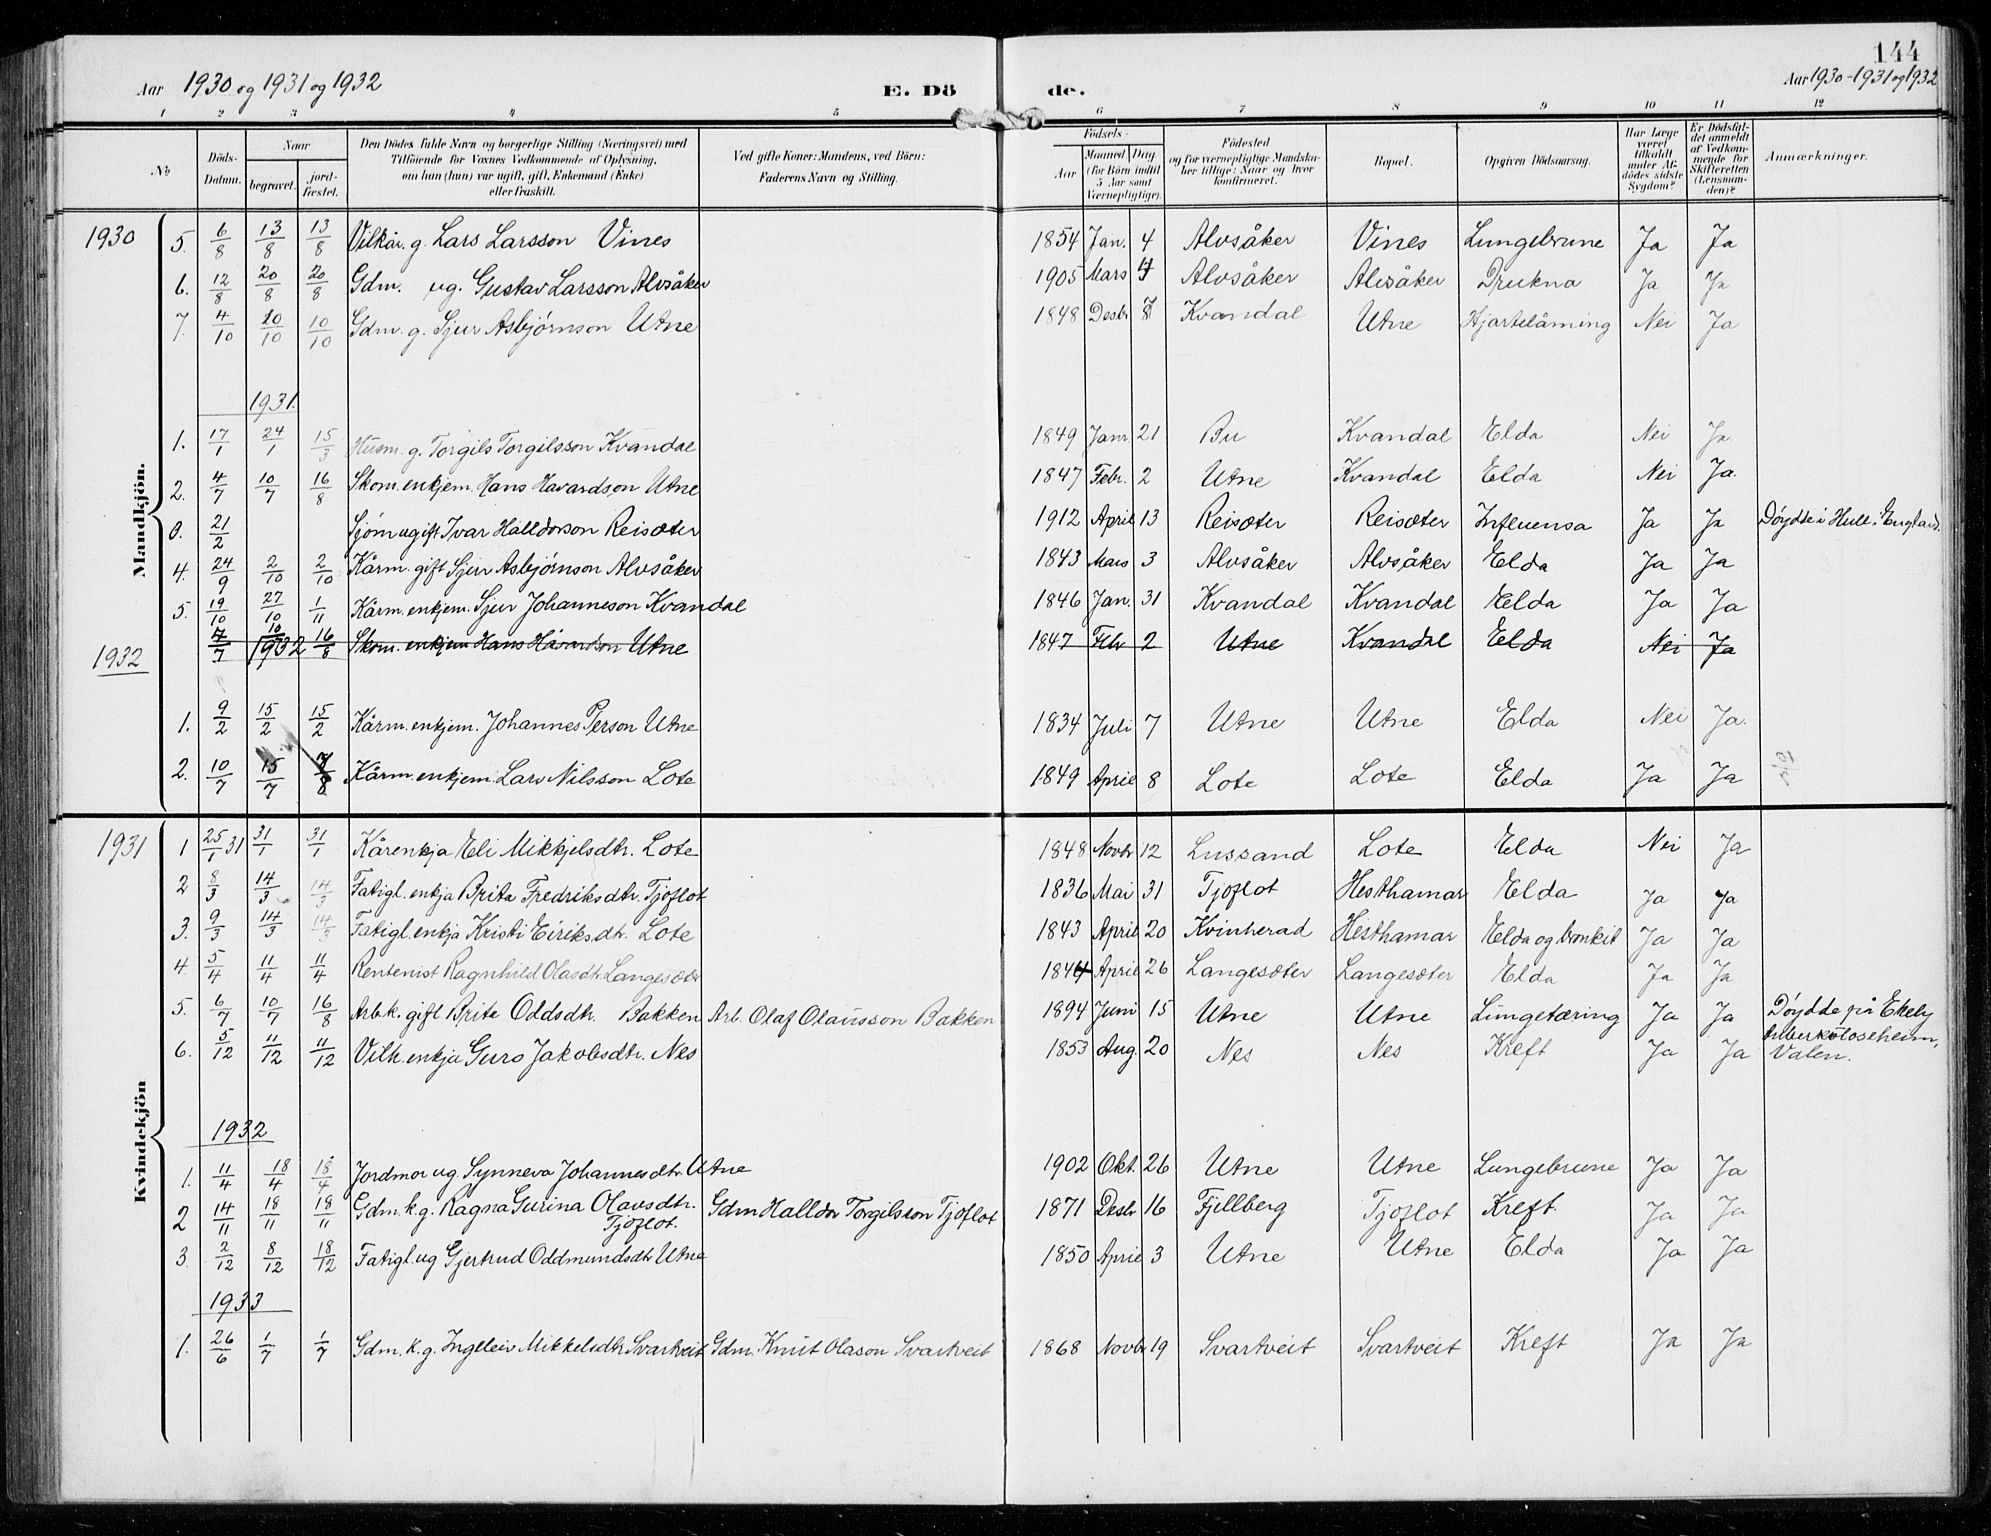 144
Aar 1930 og 1931 og 1932 E. Dö de. Aar 1930-1931 og 1932
1 2 3 4 5 6 7 8 9 10 11 12
No
Döds-Datum.
Naar
begravet.
jord-fæstet.
Den Dödes fulde Navn og borgerlige Stilling (Næringsvei) med
Tilföiende for Voxnes Vedkommende af Oplysning,
om han (hun) var ugift, gift, Enkemand (Enke)
eller fraskilt.
Ved gifte Koner: Mandens, ved Börn:
Faderens Navn og Stilling.
Födsels-
Aar
Maaned Dag
(for Börn indtil
5 Aar samt
Værnepligtige).
Födested
og for værnepligtige Mandska-
ber tillige: Naar og hvor
konfirmeret.
Bopæl.
Opgiven Dödsaarsag.
Har Læge
været
tilkaldt
under Af-
dödes sidste
Sygdom?
Er Dödsfal-
det anmeldt
af Vedkom-
mende for
Skifteretten
(Lensman-
den)?
Anmærkninger.
Mandkjön.
1930 5. 6/8 13/8 13/8 Vilkår. g. Lars Larsson Vines 1854 Jan. 4 Alvsåker Vines Lungebrune Ja Ja
6. 12/8 20/8 20/8 Gdm. ug. Gustav Larsson Alvsåker 1905 Mars 4 Alvsåker Alvsåker Drukna Ja Ja
7. 4/10 10/10 10/10 Gdm. g. Sjur Asbjørnson Utne 1848 Desbr 8 Kvandal Utne Hjartelåming Nei Ja
1931.
1. 17/1 24/1 15/3 Husm. g. Torgils Torgilsson Kvandal 1849 Janr 21 Bu Kvandal Elda Nei Ja.
2. 4/7 10/7 16/8 Skom. enkjem. Hans Havardson Utne 1847 Febr. 2 Utne Kvandal Elda Nei Ja.
21/2 Sjøm ugift Ivar Halldorson Reisæter 1912 April 13 Reisæter Reisæter Influensa Ja Ja Døydde i Hull i England.
4. 24/9 2/10 2/10 Kårm. gift Sjur Asbjørnson Alvsåker 1843 Mars 3 Alvsåker Alvsåker Elda Ja Ja
5 19/10 27/10 1/11 Kårm. enkjem. Sjur Johanneson Kvandal 1846 Jan. 31 Kvandal Kvandal Elda Ja Ja
7/7 10 16/8 Skom. enkjem Hans Håvardson Utne 1847 Febr 2 Utne Kvandal Elda Nei Ja
1932 1932
1. 9/2 15/2 15/2 Kårm. enkjem. Johannes Person Utne 1834 Juli 7 Utne Utne Elda Nei Ja.
2. 10/7 15/7 7/8 Kårm. enkjem. Lars Nilsson Lote 1849 April 8 Lote Lote Elda Ja Ja
Kvindekjön
1931 1 25/1 31 31/1 31/1 Kårenkja Eli Mikkjelsdtr. Lote 1848 Novbr 12 Lussand Lote Elda Nei Ja
2 8/3 14/3 14/3 Fatigl. enkja Brita Fredriksdtr. Tjoflot 1836 Mai 31 Tjoflot Hesthamar Elda Ja Ja
3. 9/3 14/3 14/3 Fatigl. enkja Kristi Eiriksdtr. Lote 1843 April 20 Kvinherad Hesthamar Elda og bronkit Ja Ja
4. 5/4 11/4 11/4 Rentenist Ragnhild Olasdtr Langesæter 1844 April 26 Langesæter Langesæter Elda Ja Ja
5. 6/7 10/7 16/8 Arb.k. gift Brita Oddsdtr. Bakken Arb. Olaf Olausson Bakken 1894 Juni 15 Utne Utne Lungetæring Ja Ja Døydde på Ekely tuberkuloseheim, Valen.
6. 5/12 11/12 11/12 Vilk. enkja Guro Jakobsdtr. Nes 1853 Aug. 20 Nes Nes Kreft Ja Ja
1932
1. 11/4 18/4 18/4 Jordmor ug. Synneva Johannesdtr. Utne 1902 Okt. 26 Utne Utne Lungebrune Ja Ja
2 14/11 18/11 18/11 Gdm. k. g. Ragna Gurina Olavsdtr. Tjoflot. Gdm Halldor Torgilsson Tjoflot 1871 Desbr 16 Fjellberg Tjoflot Kreft. Ja Ja
3. 2/12 8/12 18/12 Fatigl. ug Gjertrud Oddmundsdtr Utne 1850 April 3 Utne Utne Elda Ja Ja
1933
1. 26/6 1/7 1/7 Gdm. k. g. Ingeleiv Mikkelsdtr Svartveit Gdm. Knut Olason Svartveit 1868 Novbr 19 Svartveit Svartveit Kreft Ja Ja